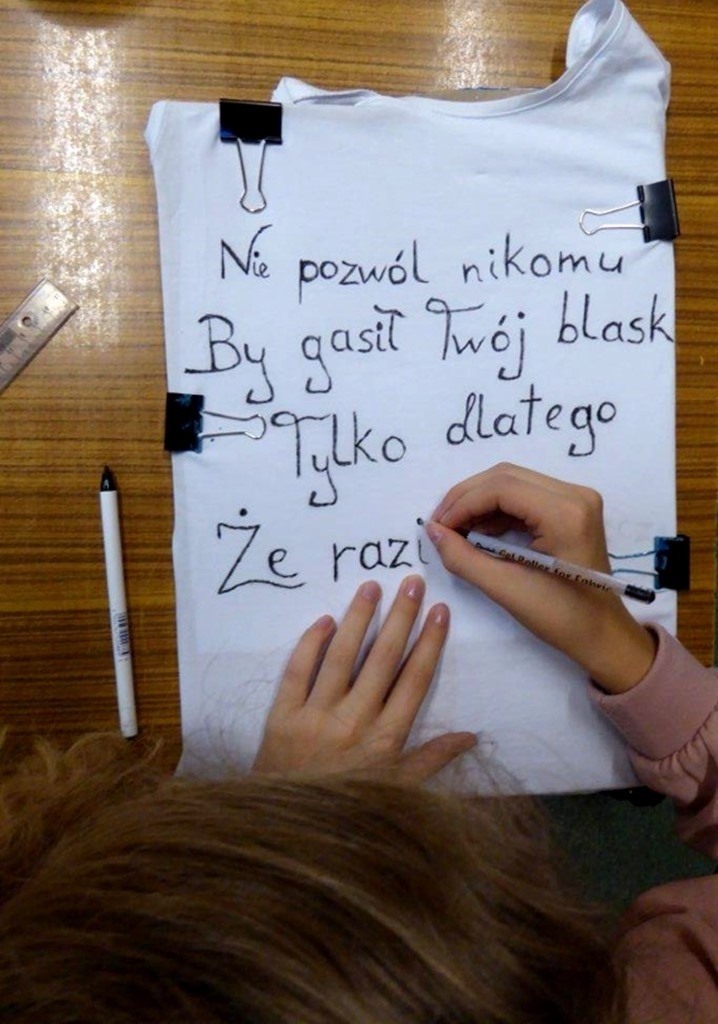 Nie pozwól nikomu
By gasił Twój blask
Tylko dlatego
Że razi
Gel Roller for Fabric